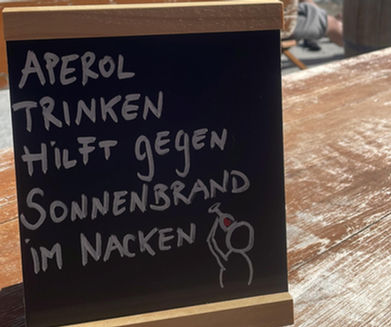 APEROL
TRINKEN
HILFT gEgEN
SONNENBRAND
iM NACKEN